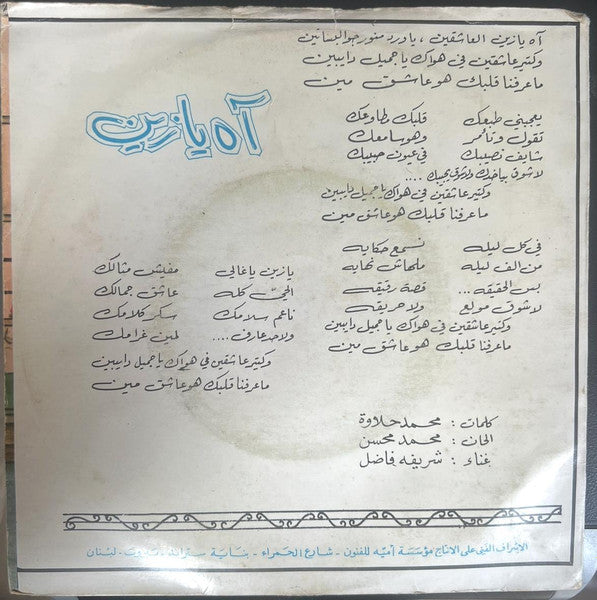 آه يازين العاشقين ، ياورد منور جوا البساتين
وكتير عاشقين في هواك يا جميل دايبين
ما عرفنا قلبك هو عاشق مين
آه يا زين
يعجبني طبعك قلبك مطاوعك
تقول وتأمر وهو سامعك
شايف نصيبك في عيون حبيبك
لا شوق بياخدك ولا
وكتير عاشقين في هواك يا جميل دايبين
ما عرفنا قلبك هو عاشق مين
في كل ليله نسمع حكايه
من الف ليله ملهاش نهايه
بس الحقيقه ... قصة رقيقه
لا شوق مولع ولا حريقه
وكتير عاشقين في هواك يا جميل دايبين
ما عرفنا قلبك هو عاشق مين
يا زين يا غالي مفيش مثالك
الحي كله عاشق جمالك
ناعم سلامك سكر كلامك
ولا حد عارف .... لمين غرامك
وكتير عاشقين في هواك يا جميل دايبين
ما عرفنا قلبك هو عاشق مين
كلمات : محمد حلاوة
الحان : محمد محسن
غناء : شريفه فاضل
الاشراف الفني على الانتاج مؤسسة أميه للفنون - شارع الحمراء - بناية - لبنان